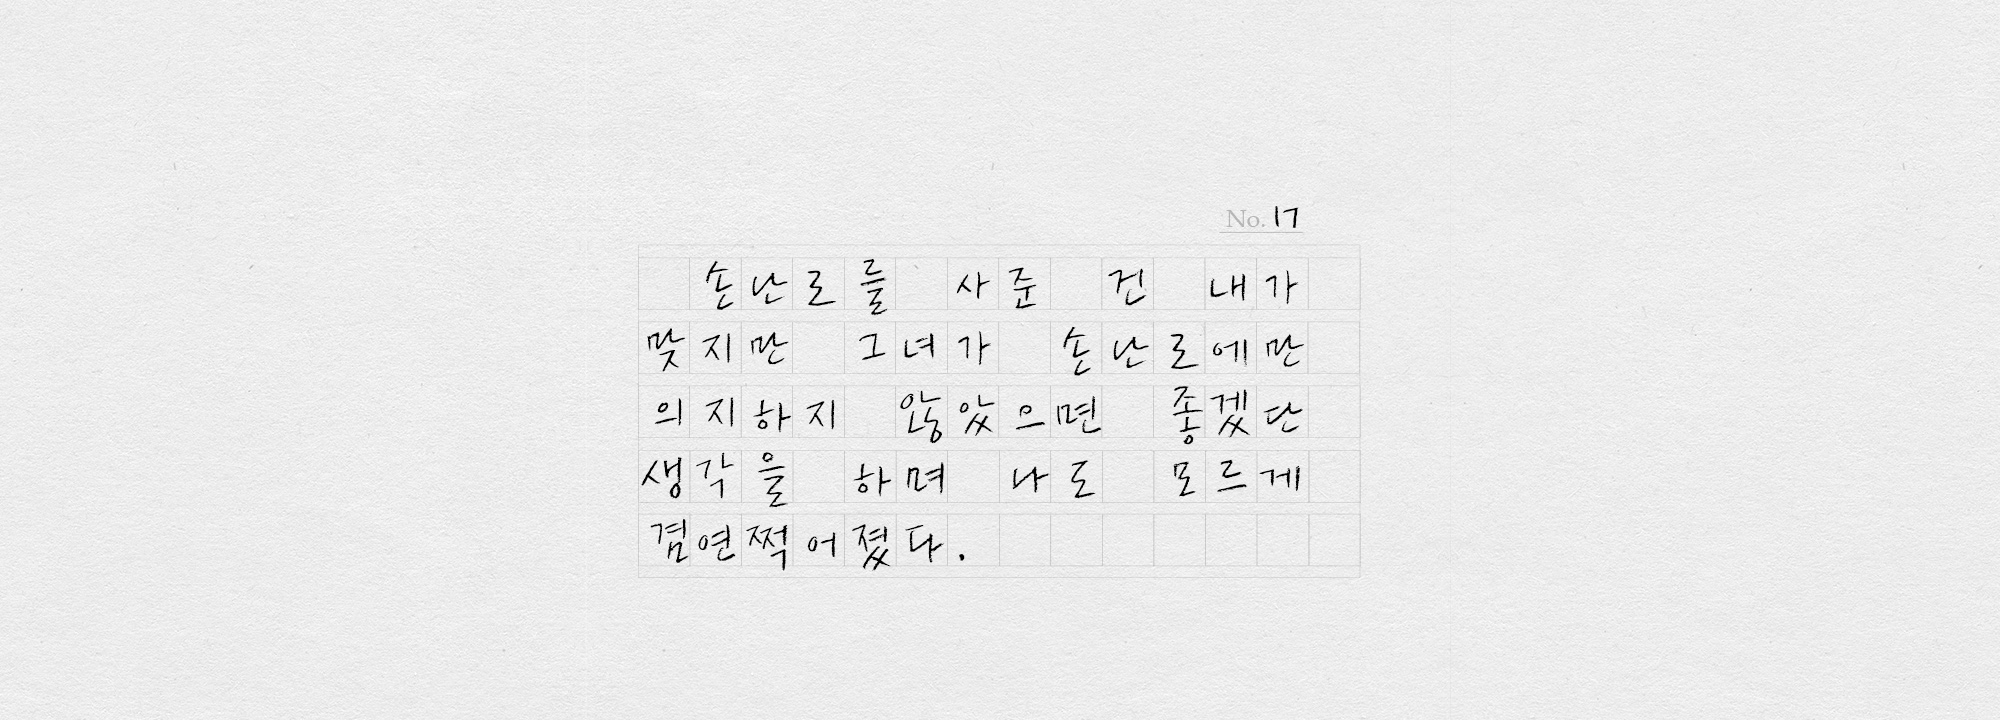 No. 17
손난로를 사준 건 내가
맞지만 그녀가 손난로에만
의지하지 않았으면 좋겠단
생각을 하며 나도 모르게
겸연쩍어졌다.